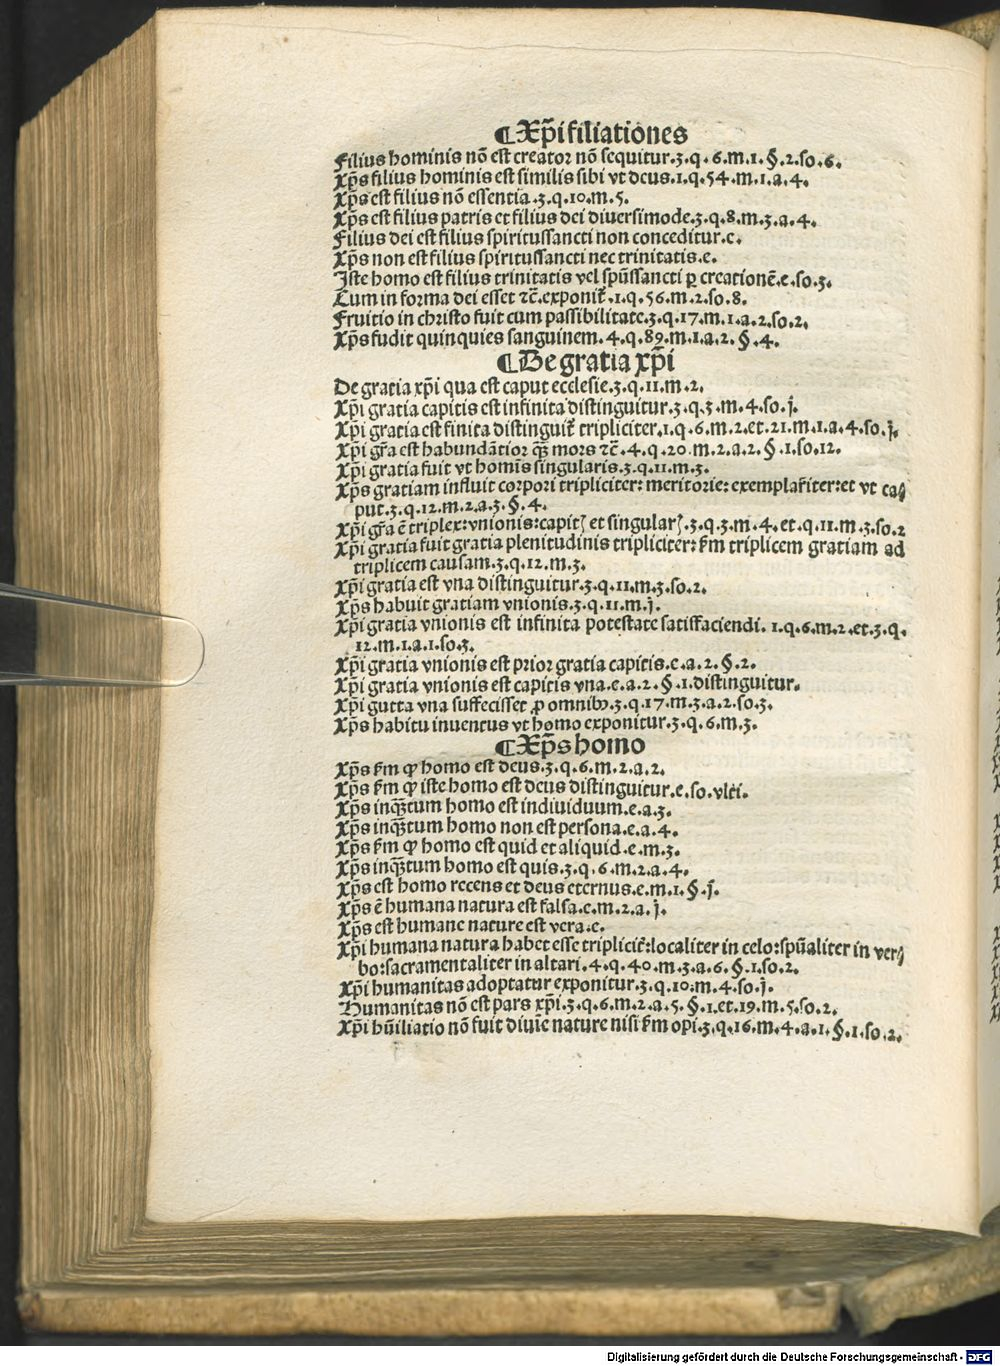 ¶Xp̄i filiationes
Filius hominis nō est creator nō sequitur.3.q.6.m.1.§.2.so.6.
Xp̄s filius hominis est similis sibi vt deus.1.q.54.m.1.a.4.
Xp̄s est filius nō essentia.3.q.10.m.5.
Xp̄s est filius patris et filius dei diuersimode.3.q.8.m.3.a.4.
Filius dei est filius spiritussancti non conceditur.e.
Xp̄s non est filius spiritussancti nec trinitatis.e.
Iste homo est filius trinitatis vel spūssancti ꝑ creationē.e.so.3.
Cum in forma dei esset ⁊c̄.exponit̄.1.q.56.m.2.so.8.
Fruitio in christo fuit cum passibilitate.3.q.17.m.1.a.2.so.2.
Xp̄s fudit quinquies sanguinem.4.q.89.m.1.a.2.§.4.
¶De gratia xp̄i
De gratia xp̄i qua est caput ecclesie.3.q.11.m.2.
Xp̄i gratia capitis est infinita distinguitur.3.q.3.m.4.so.j.
Xp̄i gratia est finita distinguit̄ tripliciter.1.q.6.m.2.et.21.m.1.a.4.so.j.
Xp̄i gr̄a est habundātior q̄ꝫ mors ⁊c̄.4.q.20.m.2.a.2.§.1.so.12.
Xp̄i gratia fuit vt homīs singularis.3.q.11.m.3.
Xp̄s gratiam influit corpori tripliciter: meritorie: exemplar̄iter: et vt ca⸗
put.3.q.12.m.2.a.3.§.4.
Xp̄i gr̄a ē triplex: vnionis: capitꝭ et singularꝭ.3.q.3.m.4.et.q.11.m.3.so.2
Xp̄i gratia fuit gratia plenitudinis tripliciter: ẜm triplicem gratiam ad
triplicem causam.3.q.12.m.3.
Xp̄i gratia est vna distinguitur.3.q.11.m.3.so.2.
Xp̄s habuit gratiam vnionis.3.q.11.m.j.
Xp̄i gratia vnionis est infinita potestate satisfaciendi. 1.q.6.m.2.et.3.q.
12.m.1.a.1.so.3.
Xp̄i gratia vnionis est prior gratia capitis.e.a.2.§.2.
Xp̄i gratia vnionis est capitis vna.e.a.2.§.1.distinguitur.
Xp̄i gutta vna suffecisset ꝓ omnibꝰ.3.q.17.m.3.a.2.so.3.
Xp̄s habitu inuentus vt homo exponitur.3.q.6.m.3.
¶Xp̄s homo
Xp̄s ẜm ꝙ homo est deus.3.q.6.m.2.a.2.
Xp̄s ẜm ꝙ iste homo est deus distinguitur.e.so.vlti.
Xp̄s inq̄ꝫtum homo est indiuiduum.e.a.3.
Xp̄s inq̄ꝫtum homo non est persona.e.a.4.
Xp̄s ẜm ꝙ homo est quid et aliquid.e.m.3.
Xp̄s inq̄ꝫtum homo est quis.3.q.6.m.2.a.4.
Xp̄s est homo recens et deus eternus.e.m.1.§.j.
Xp̄s ē humana natura est falsa.e.m.2.a.j.
Xp̄s est humane nature est vera.e.
Xp̄i humana natura habet esse triplicit̄: localiter in celo: spūaliter in ver⸗
bo: sacramentaliter in altari.4.q.40.m.3.a.6.§.1.so.2.
Xp̄i humanitas adoptatur exponitur.3.q.10.m.4.so.j.
Humanitas nō est pars xp̄i.3.q.6.m.2.a.5.§.1.et.19.m.5.so.2.
Xp̄i hūiliatio nō fuit diuīe nature nisi ẜm opi.3.q.16.m.4.a.1.§.1.so.2.
Digitalisierung gefördert durch die Deutsche Forschungsgemeinschaft - DFG